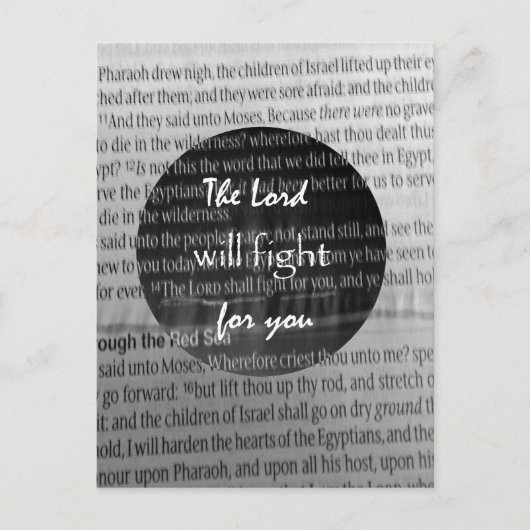 Pharaoh drew nigh, the children of Israel lifted up their
ched after them; and they were sore afraid: and the childre
11And they said unto Moses, Because there were no grave
to die in the wilderness? wherefore hast thou dealt thus
ypt? 12Is not this the word that we did tell thee in Egypt,
serve the Egyptians? better for us to serve
die in the wilderness.
said unto the people, not, stand still, and see the
new to you today ye have seen to
for ever. 14The LORD shall fight for you, and ye shall hol
The Lord
will fight
for you
rough the Red Sea
said unto Moses, Wherefore criest thou unto me? spe
y go forward: 16but lift thou up thy rod, and stretch o
it: and the children of Israel shall go on dry ground th
hold, I will harden the hearts of the Egyptians, and the
nour upon Pharaoh, and upon all his host, upon his